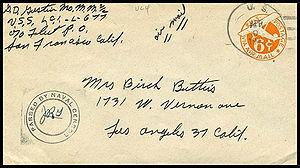 U.S.S. LCI-L-677
c/o Fleet P.O.
San Francisco Calif.
air mail
Mrs Birch Buttris
1731 W. Vernon ave
Los Angeles 37 Calif.
PASSED BY NAVAL CENSOR
U. S.
6¢
AIR MAIL